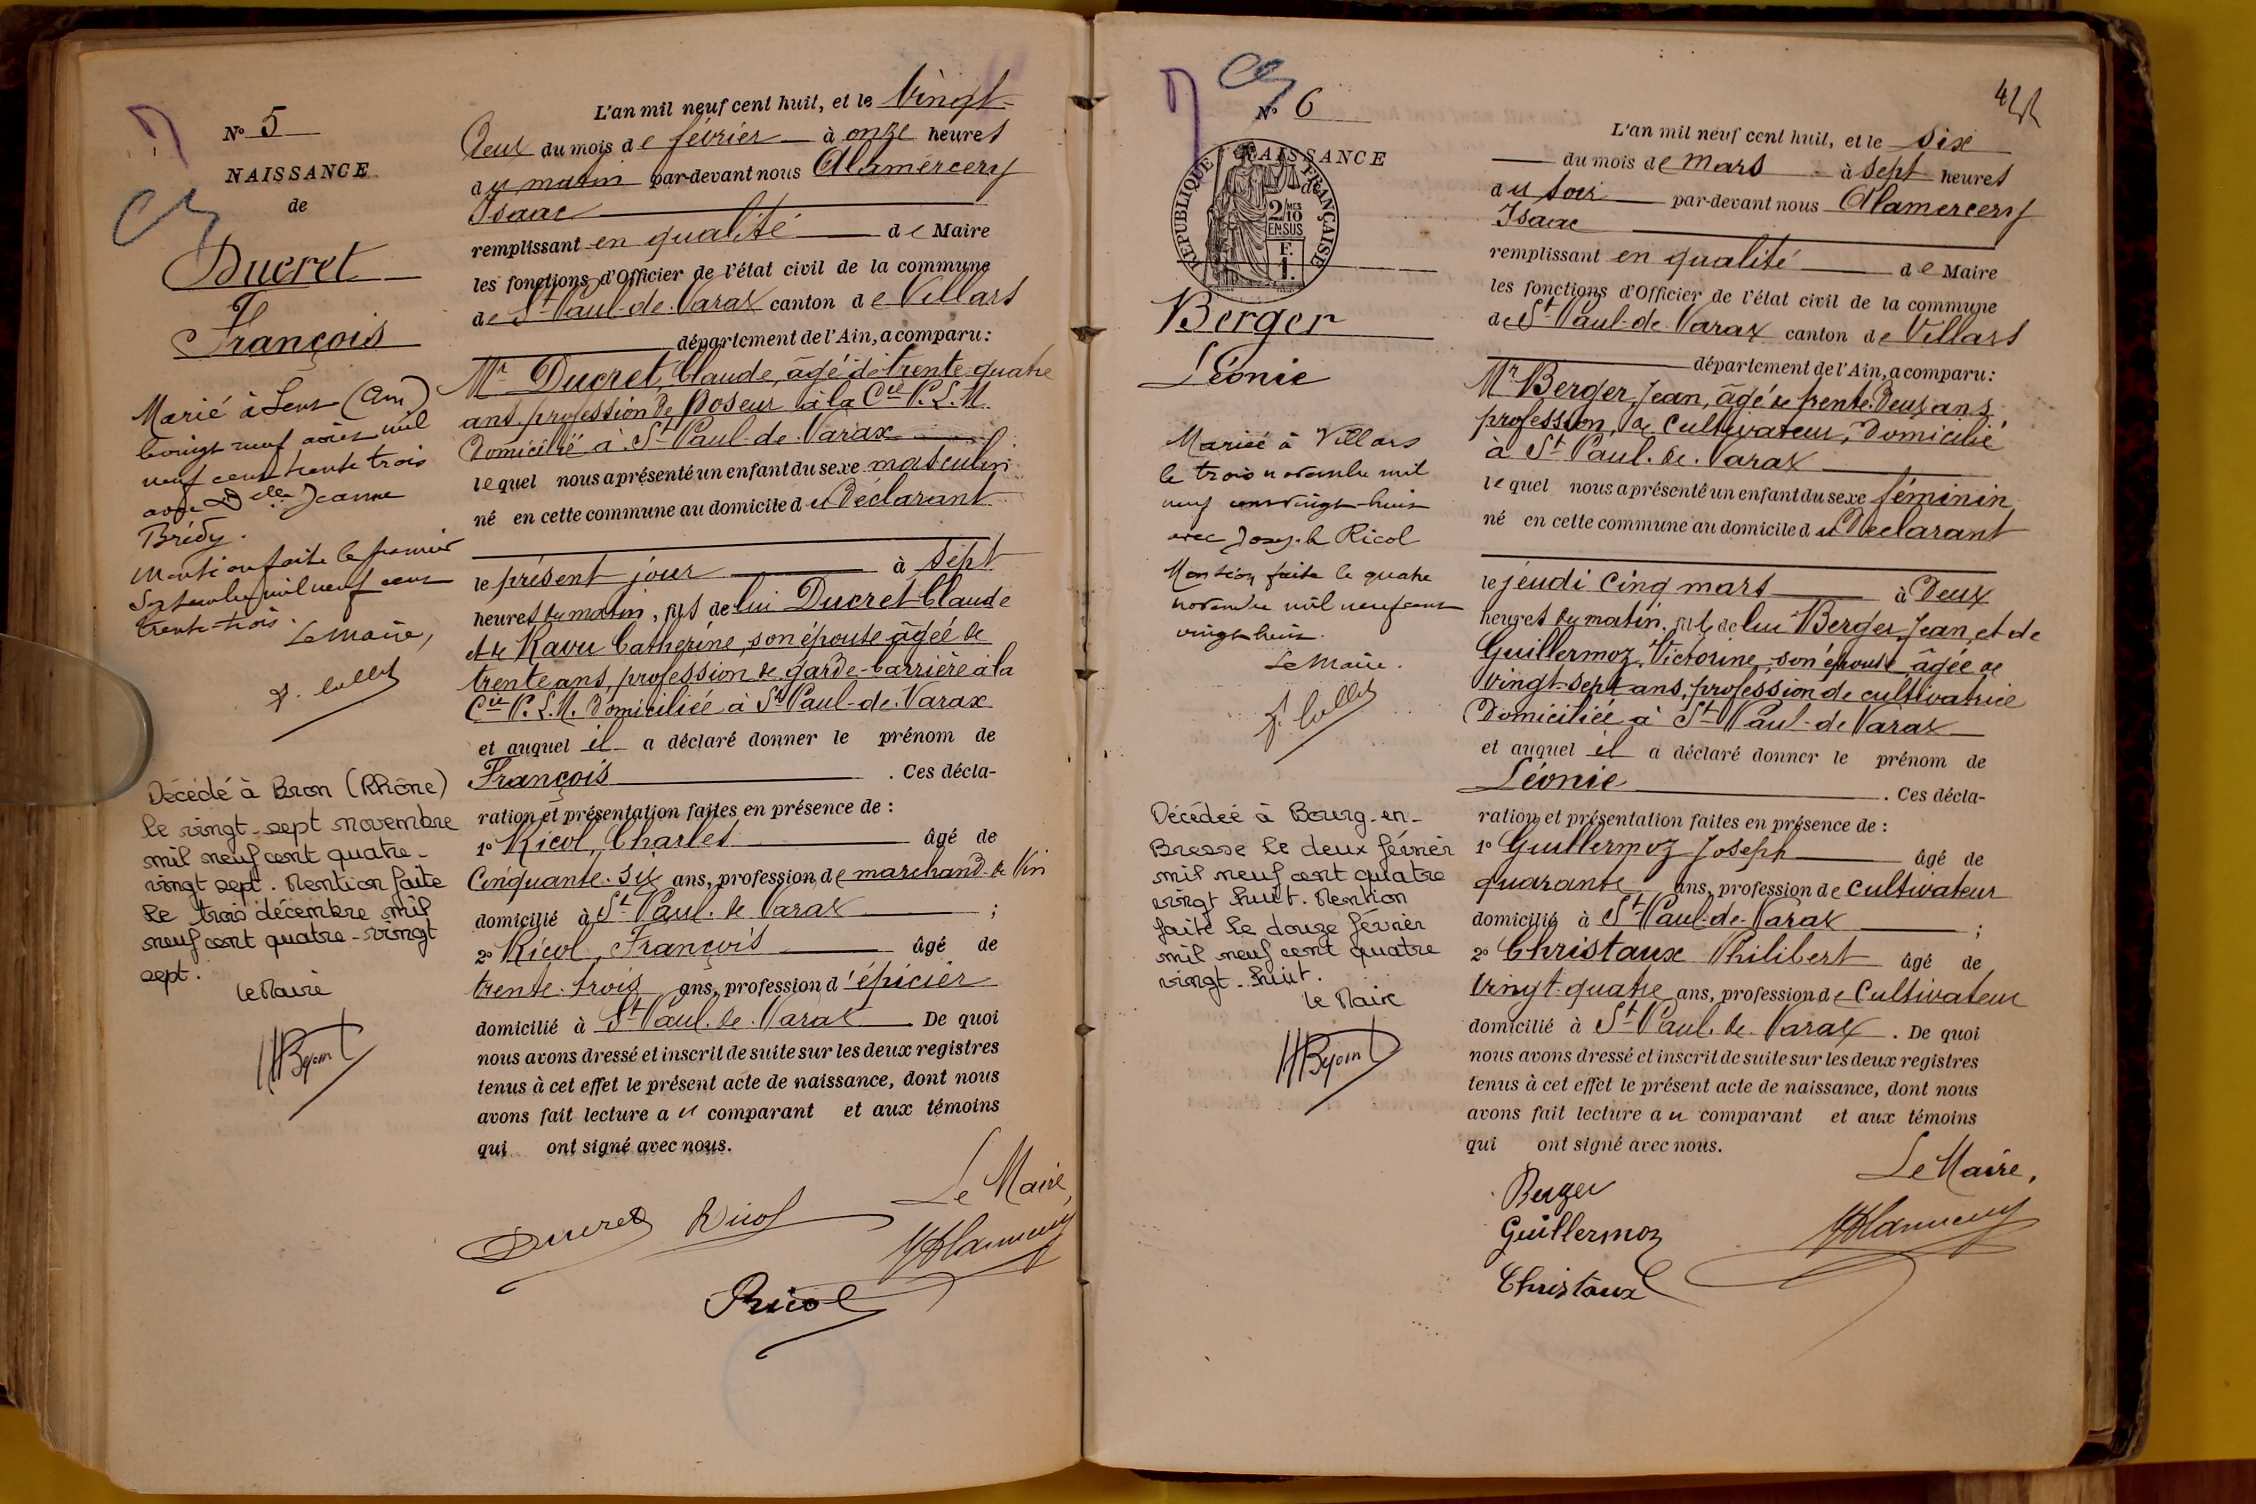 N° 5
NAISSANCE
de
Ducret
François
Marié à (Ain)
le vingt neuf août mil
neuf cent trente trois
avec Delle Jeanne
Brédy.
Mention faite le premier
Septembre mil neuf cent
trente-trois.
Le Maire,
Décédé à Bron (Rhône)
le vingt-sept novembre
mil neuf cent quatre-
vingt sept. Mention faite
le trois décembre mil
neuf cent quatre-vingt
sept.
le Maire
L'an mil neuf cent huit, et le Vingt-
Deux du mois de février à onze heures
du matin par-devant nous Alamercery
Isaac
remplissant en qualité de Maire
les fonctions d'Officier de l'état civil de la commune
de St Paul-de-Varax canton de Villars
département de l'Ain, a comparu:
Mr Ducret, Claude, âgé de trente-quatre
ans, profession de poseur à la Cie P.L.M.
Domicilié à St Paul-de-Varax
lequel nous a présenté un enfant du sexe masculin
né en cette commune au domicile du Déclarant
le présent jour à sept
heures du matin, fils de lui Ducret Claude
et de Ravu Catherine, son épouse âgée de
trente ans, profession de garde-barrière à la
Cie P.L.M. Domiciliée à St Paul-de-Varax
et auquel il a déclaré donner le prénom de
François . Ces décla-
ration et présentation faites en présence de :
1° Ricol, Charles âgé de
Cinquante-six ans, profession de marchand de Vin
domicilié à St Paul-de-Varax ;
2° Ricol, François âgé de
trente-trois ans, profession d'épicier
domicilié à St Paul-de-Varax De quoi
nous avons dressé et inscrit de suite sur les deux registres
tenus à cet effet le présent acte de naissance, dont nous
avons fait lecture au comparant et aux témoins
qui ont signé avec nous.
Le Maire,
Ducret Ricol
Ricol
42
N° 6
NAISSANCE
de
RÉPUBLIQUE FRANÇAISE
2/10
MES
EN SUS
F.
1.
Berger
Léonie
Mariée à Villars
le trois novembre mil
neuf cent vingt-huit
avec Joseph Ricol
Mention faite le quatre
novembre mil neuf cent
vingt huit.
Le Maire.
Décédée à Bourg-en-
Bresse le deux février
mil neuf cent quatre
vingt huit. Mention
faite le douze février
mil neuf cent quatre
vingt-huit.
le Maire
L'an mil neuf cent huit, et le Six
du mois de Mars à sept heures
du soir par-devant nous Alamercery
Isaac
remplissant en qualité de Maire
les fonctions d'Officier de l'état civil de la commune
de St Paul-de-Varax canton de Villars
département de l'Ain, a comparu:
Mr Berger, Jean, âgé de trente-deux ans
profession de cultivateur, Domicilié
à St Paul-de-Varax
lequel nous a présenté un enfant du sexe féminin
né en cette commune au domicile du Déclarant
le jeudi cinq mars à Deux
heures du matin, fille de lui Berger, Jean, et de
Guillermoz, Victorine, son épouse, âgée de
Vingt-sept ans, profession de cultivatrice
Domiciliée à St Paul-de-Varax
et auquel il a déclaré donner le prénom de
Léonie . Ces décla-
ration et présentation faites en présence de :
1° Guillermoz Joseph âgé de
quarante ans, profession de cultivateur
domicilié à St Paul-de-Varax ;
2° Christaux Philibert âgé de
Vingt-quatre ans, profession de Cultivateur
domicilié à St Paul-de-Varax . De quoi
nous avons dressé et inscrit de suite sur les deux registres
tenus à cet effet le présent acte de naissance, dont nous
avons fait lecture au comparant et aux témoins
qui ont signé avec nous.
Le Maire,
Berger
Guillermoz
Christaux